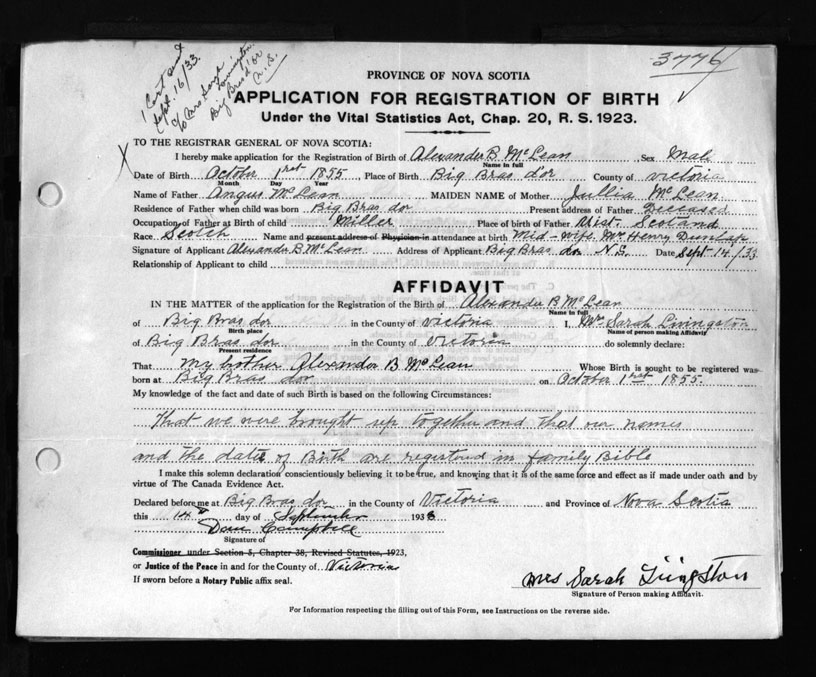 3776
1 Cert sent
Sept. 16/33
c/o Mrs
Big Bras d'or
N.S.
PROVINCE OF NOVA SCOTIA
APPLICATION FOR REGISTRATION OF BIRTH
Under the Vital Statistics Act, Chap. 20, R. S. 1923.
X TO THE REGISTRAR GENERAL OF NOVA SCOTIA:
I hereby make application for the Registration of Birth of Alexander B McLean Sex Mal
Name in full
Date of Birth Octobr 1rst 1855 Place of Birth Big Bras d'or County of Victoria
Month Day Year
Name of Father Angus McLean MAIDEN NAME of Mother Jullia McLean
Residence of Father when child was born Big Bras dor Present address of Father Deceased
Occupation of Father at Birth of child Miller Place of birth of Father Uist. Scotand
Race Scotch Name and present address of Physician in attendance at birth Mid-wife Mrs Henry Dunlap
Signature of Applicant Alexander B McLean Address of Applicant Big Bras dor N.S. Date Sept 14/33
Relationship of Applicant to child
AFFIDAVIT
IN THE MATTER of the application for the Registration of the Birth of Alexander B McLean
Name in full
of Big Bras dor in the County of Victoria I, Mrs Sarah Livingston
Birth place Name of person making Affidavit
of Big Bras dor in the County of Victoria do solemnly declare:
Present residence
That my brother Alexander B McLean Whose Birth is sought to be registered was
born at Big Bras dor on October 1rst 1855.
My knowledge of the fact and date of such Birth is based on the following Circumstances:
That we were brought up together and that our names
and the date of Birth are registerd in family Bible
I make this solemn declaration conscientiously believing it to be true, and knowing that it is of the same force and effect as if made under oath and by
virtue of The Canada Evidence Act.
Declared before me at Big Bras dor in the County of Victoria and Province of Nova Scotia
this 14th day of September 1933
Dan Campbell
Signature of
Commissioner under Section 5, Chapter 38, Revised Statutes, 1923,
or Justice of the Peace in and for the County of Victoria
If sworn before a Notary Public affix seal.
Mrs Sarah Livingston
Signature of Person making Affidavit.
For Information respecting the filling out of this Form, see Instructions on the reverse side.